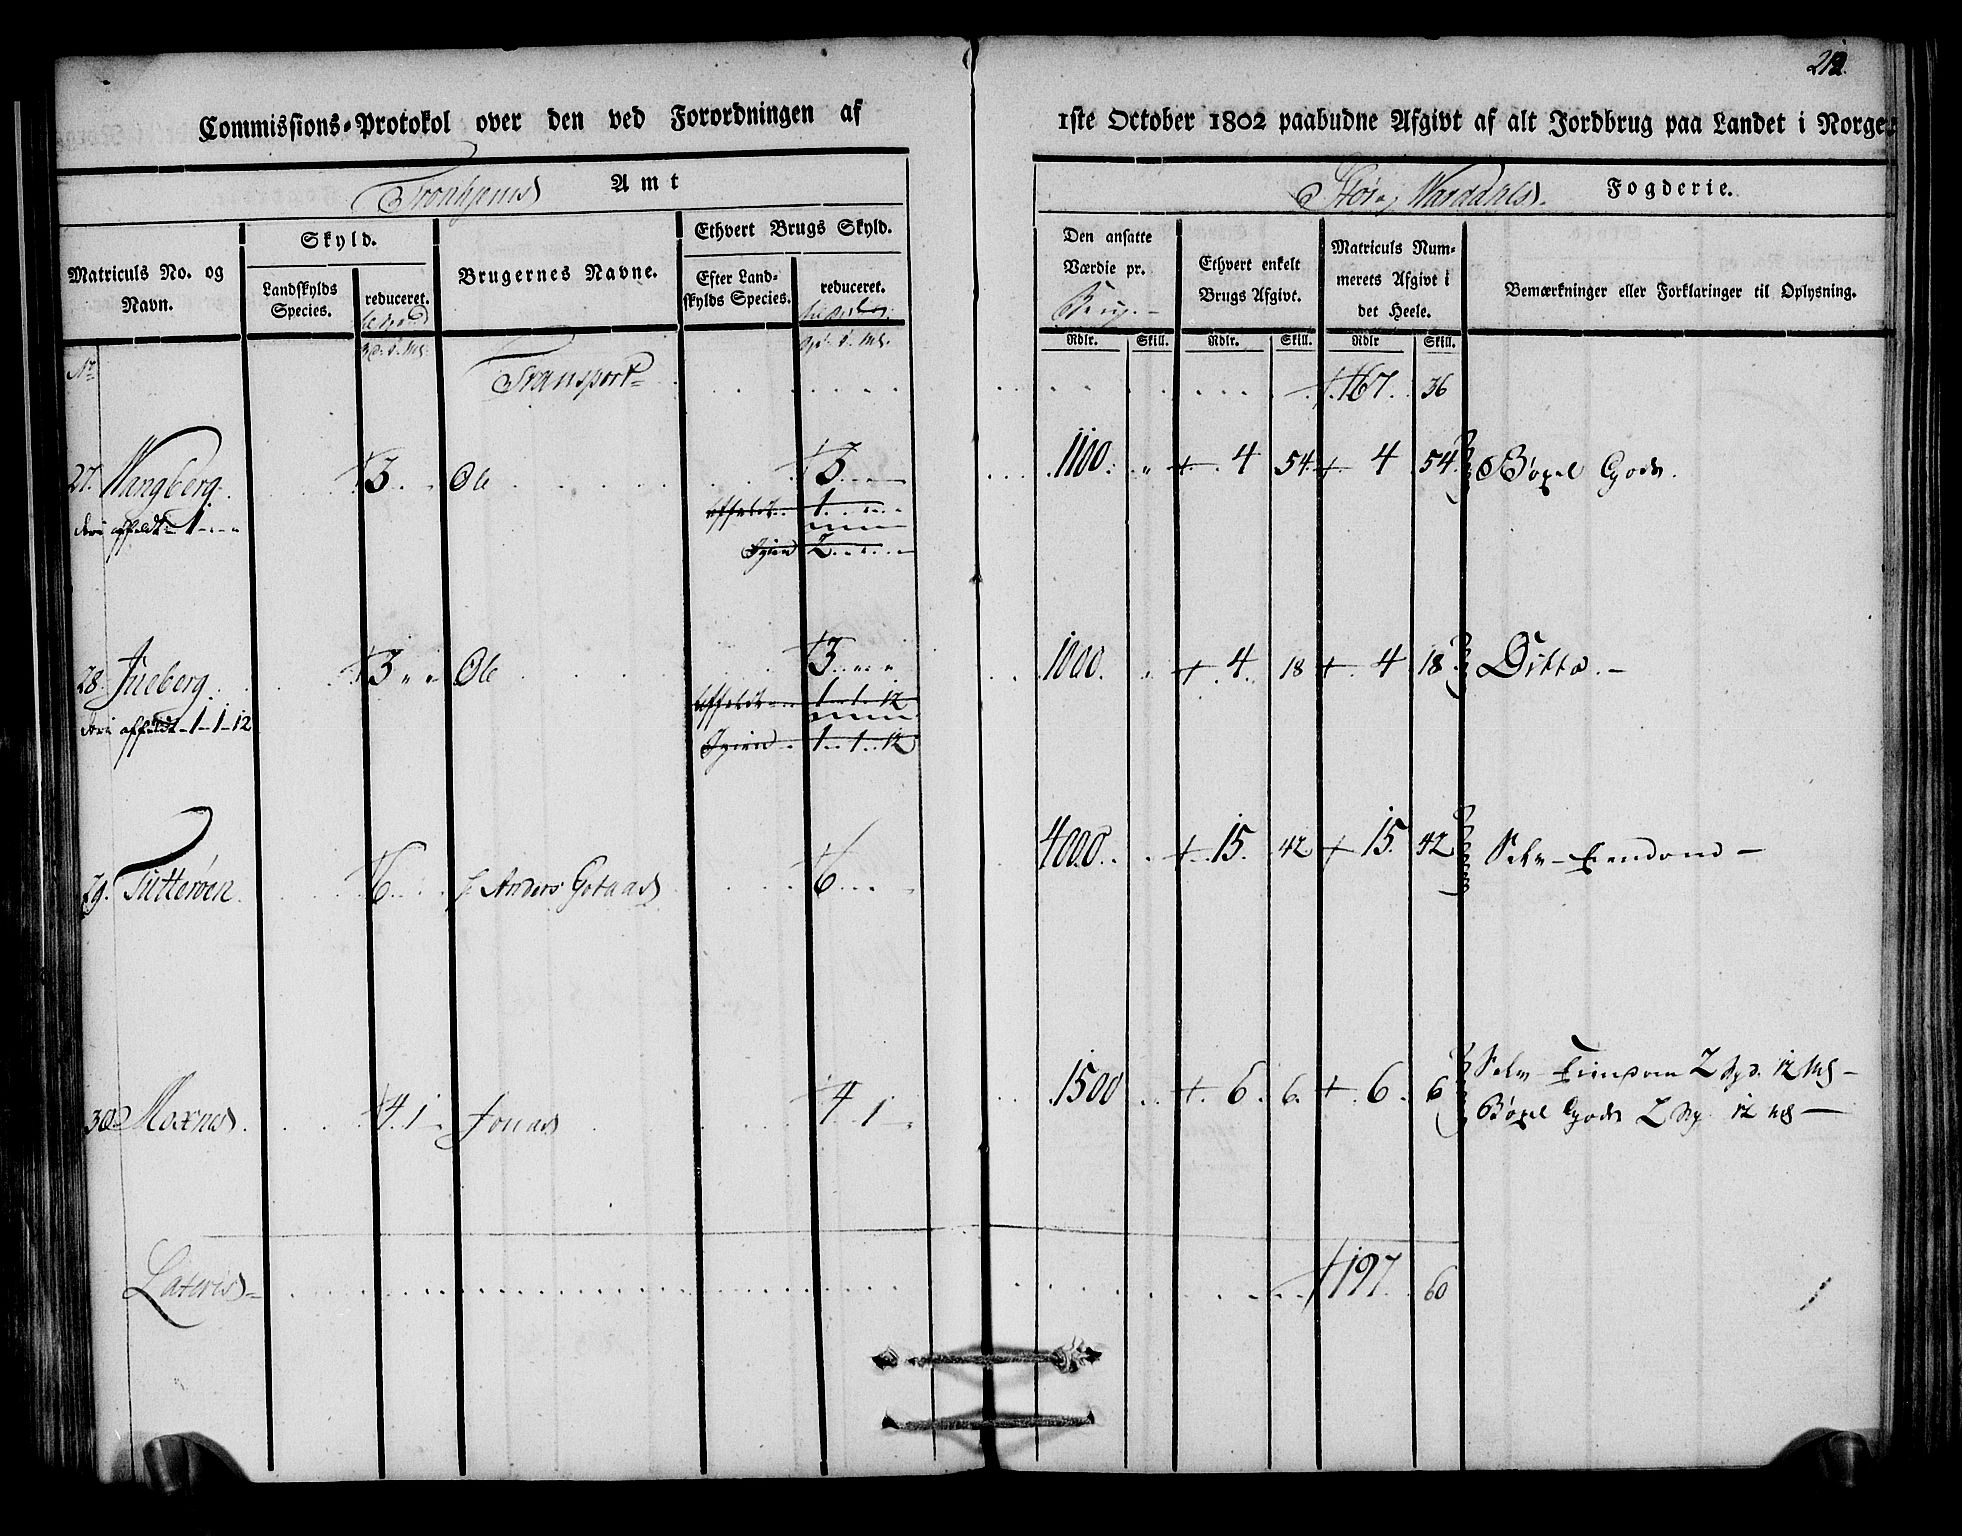 212.
Commissions-Protokol over den ved Forordningen af 1ste October 1802 paabudne Afgivt af alt Jordbrug paa Landet i Norge.
Tronhjems Amt
Stør og Værdahls Fogderie.
Matriculs No. og Navn.
Skyld.
Landskylds Species.
reduceret.
Brugernes Navne.
Ethvert Brugs Skyld.
Efter Landskylds Species.
reduceret.
Den ansatte Værdie pr. Brug.
Ethvert enkelt Brugs Afgivt.
Matriculs Nummerets Afgivt i det Heele.
Bemærkninger eller Forklaringer til Oplysning.
Rdlr. Skill. Rdlr. Skill. Rdlr Skill.
No
Transport 167. 36
27. Wangberg. 3 Ole 3 1100. 4 54. 4 54. Bøxel Gods.
deri affældt 1 affældt 1
Igien 2
28. Jueberg. 3 Ole 3 1000. 4 18 4 18 Ditto.
deri affældt 1-1-12 affældt 1 1 12
Igien 1 1 12
29. Tutterøen 6 Anders Gotaas 6 4000. 15. 42 15. 42 Selv-Eiendom
30. Moxnes. 4. 1 Jonas 4. 1 1500 6 6. 6. 6 Selv-Eiendom 2 Spd. 12 Mk
Bøxel Gods 2 Sp. 12 Mk
Lateris 197. 60